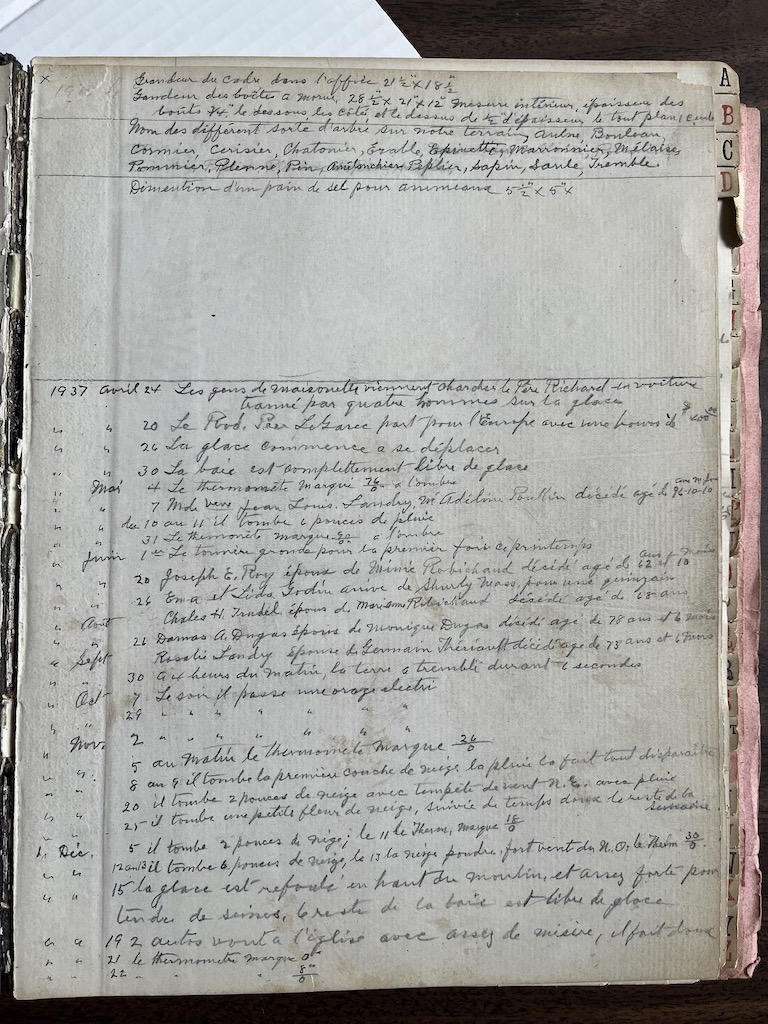 x Grandeur du cadre dans l'office 21 ½" x 18 ½"
Gandeur des boîtes a morue, 28 ½" x 21" x 12" mesure intérieur, épaisseur des
bouts ¾" le dessous, les côté, et le dessus de ½ d'épaisseur le tout plan
Nom des différent sorte d'arbre sur notre terrain, Aulne, Bouleau,
Cormier, Cerisier, Chatonier, Érable, Epinette, Marronnier, Mélaise,
Pommier, Pin, Peplier, Sapin, Saule, Tremble.
Dimention d'un pain de sel pour animeaux 5 ½" x 5" x
1937 avril 24 Les gens de Maisonette viennent charcher le Père Richard en voiture
trainé par quatre hommes sur la glace
" " 20 Le Rvd. Peer LeGarec part pour l'Europe avec une bource de $400.00
" " 26 La glace commence a se déplacer
" " 30 La baie est complettement libre de glace
" Mai 4 Le thermomètre marque 76/0 a l'ombre
" " 7 Mde veve Jean Louis Landry, né Adéline Poullin décidé agé de 96-10-10
" " du 10 au 11 il tombe 6 pouces de pluie
" " 31 Le themonètè marque 90/0 a l'ombre
" Juin 1er Le tonnère gronde pour la premier fois ce printemps
" " 20 Joseph E. Roy époux de Minie Robichaud décidé agé de 62 ans et 10 mois
" " 26 Ema et Lida Godin arrive de Shurly Mass, pour une quinzain
" Aout Chales H. Trudel époux de Marianne Robichaud décédé agé de 68 ans
" " 26 Damas A. Dugas époux de Monique Dugas décidé agé de 78 ans et 6 mois
" Sept Rosalie Landry épouse de Germain Thériault décidé age de 73 ans et 6 mois
" " 30 A 4 heures du matin, la terre a tremblé durant 6 secondes
" Oct 7 Le soir il passe une orage electri
" " 29 " " " " " "
" Nov. 2 " " " " " "
" " 5 au matin le thermomètè marque 26/0
" " 8 au 9 il tombe la première couche de neige la pluie la fait tout disparaitre
" " 20 il tombe 2 pouces de neige avec tempête de vent N.E. avec pluie
" " 25 il tombe une petite fleur de neige, suivie de temps doux le reste de la semaine
" Déc. 5 il tombe 2 pouces de nège; le 11 le Therm, marque 18/0
" " 12 au 13 il tombe 6 pouces de neige, le 13 la neige poudre, fort vent du N.O. le Therm 30/0.
" " 15 la glace est refoulé en haut du moulin, et assez forte pour
tendre de seines, le reste de la baie est libre de glace
" " 19 2 autos vont a l'église avec assez de misère, il fait doux
" " 21 le thermomètre marque 0°
" " 22 " " " 8/0
A
B
C
D